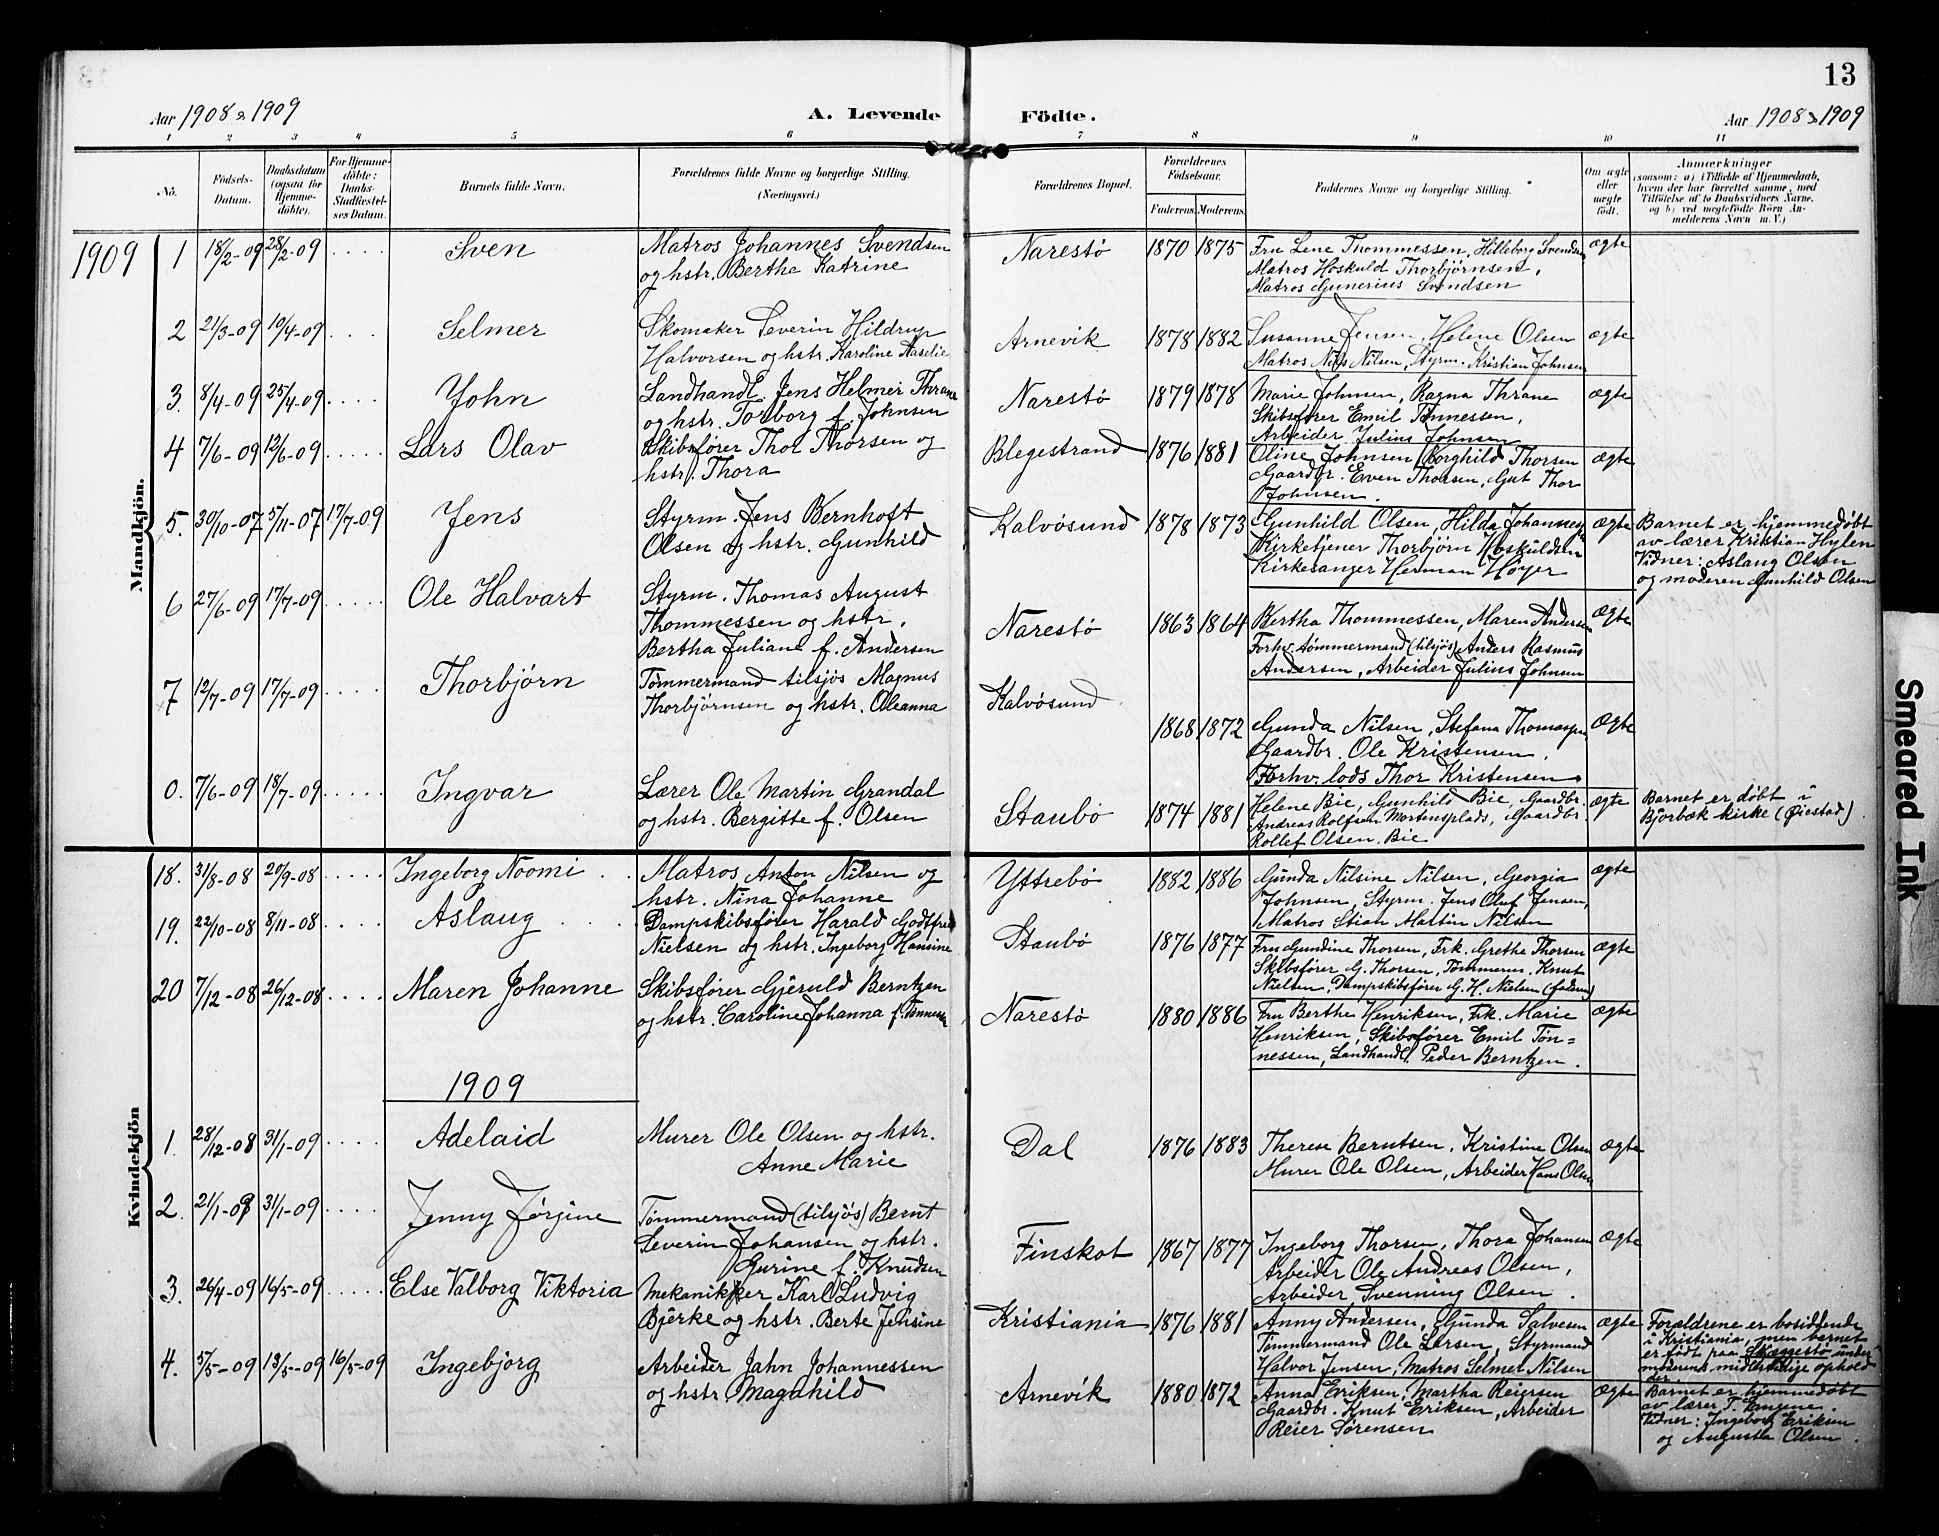 13
Aar 1908 & 1909
A. Levende Födte.
Aar 1908 & 1909
1 2 3 4 5 6 7 8 9 10 11
No.
Födsels-Datum.
Daabsdatum (ogsaa för Hjemme-döbte).
For Hjemme-döbte: Daabs-Stadfæstel-ses Datum.
Barnets fulde Navn.
Forældrenes fulde Navne og borgerlige Stilling. (Næringsvei.)
Forældrenes Bopæl.
Forældrenes Födselsaar.
Faderens. Moderens.
Faddernes Navne og borgerlige Stilling.
Om ægte eller uægte födt.
Anmærkninger
(saasom: a) i Tilfælde af Hjemmedaab, hvem der har forrettet samme, med Tilföielse af to Daabsvidners Navne, og b) ved uægtefödte Börn An-melderens Navn m. V.)
Mandkjön.
1909 1 18/2-09 28/2-09 Sven
Matros Johannes Svendsen
og hstr. Berthe Katrine
Narestø 1870 1875
Fru Lene Thommessen, Hilleborg Svendsen
Matros Høskuld Thorbjørnsen,
Matros Gunerius Svendsen
ægte
2 21/3-09 10/4-09 Selmer
Skomaker Severin Hildrup
Halvorsen og hstr. Karoline Aaselie
Arnevik 1878 1882
Susanne Jensen, Helene Olsen
Matros Nils Nilsen, Styrm. Kristian Johnsen
ægte
3. 8/4-09 25/4-09 John
Landhandl. Jens Helmer Thrane
og hstr. Torborg f. Johnsen
Narestø 1879 1878
Marie Johnsen, Ragna Thrane
Skibsfører Emil Tønnessen,
Arbeider Julius Johnsen
ægte
4 7/6-09 12/6-09 Lars Olav
Skibsfører Thor Thorsen og
hstr. Thora
Blegestrand 1876 1881
Oline Johnsen, Borghild Thorsen
Gaardbr. Even Thorsen, Gut Thor
Johnsen.
ægte
5. 30/10-07 5/11-07 17/7-09 Jens
Styrm. Jens Bernhoft
Olsen og hstr. Gunhild
Kalvøsund 1878 1873
Gunhild Olsen, Hilda Johannesen
Kirketjener Thorbjørn Høskuldsen
Kirkesanger Herman Høyer
ægte
Barnet er hjemmedøbt
av lærer Kristian Hylen
Vidner: Aslaug Olsen
og moderen Gunhild Olsen
6 27/6-09 17/7-09 Ole Halvart
Styrm. Thomas August
Thommessen og hstr.
Bertha Juliane f. Andersen
Narestø 1863 1864
Bertha Thommessen, Maren Andersen
Forhv. tømmermand (tilsjøs) Anders Rasmus
Andersen, Arbeider Julius Johnsen
ægte
7 12/7-09 17/7-09 Thorbjørn
Tømmermand tilsjøs Magnus
Thorbjørnsen og hstr. Oleanna
Kalvøsund 1868 1872
Gunda Nilsen, Stefana
Gaardbr. Ole Kristensen,
Forhv. lods Thor Kristensen
ægte
0. 7/6-09 18/7-09 Ingvar
Lærer Ole Martin Grandal
og hstr. Bergitte f. Olsen
Staubø 1874 1881
Helene Bie, Gunhild Bie, Gaardbr.
Andreas Rolfsen Mortensplads, Gaardbr.
Rollef Olsen Bie
ægte
Barnet er døbt i
Bjorbæk kirke (Øiestad).
Kvindekjön
18. 31/8-08 20/9-08 Ingeborg Noomi
Matros Anton Nilsen og
hstr. Nina Johanne
Yttrebø 1882 1886
Gunda Nilsine Nilsen, Georgia
Johnsen, Styrm. Jens Oluf Jensen,
Matros Stian Martin Nilsen
ægte
19. 22/10-08 8/11-08 Aslaug
Dampskibsfører Harald Godtfred
Nielsen og hstr. Ingeborg Hansine
Staubø 1876 1877
Fru Gundine Thorsen, Frk. Grethe Thorsen
Skibsfører G. Thorsen, Tømmerm. Knut
Nielsen, Dampskibsfører G. H. Nielsen (faderen)
ægte
20 7/12-08 26/12-08 Maren Johanne
Skibsfører Gjeruld Berntzen
og hstr. Caroline Johanna f. Tønnessen
Narestø 1880 1886
Fru Berthe Henriksen, Frk. Marie
Henriksen, Skibsfører Emil Tøn=
nessen, Landhandl. Peder Berntzen.
ægte
1909
1. 28/12-08 31/1-09 Adelaid
Murer Ole Olsen og hstr.
Anne Marie
Dal 1876 1883
Therese Berntsen, Kristine Olsen
Murer Ole Olsen, Arbeider Hans Olsen
ægte
2. 21/1-09 31/1-09 Jenny Jørgine
Tømmermand (tilsjøs) Bernt
Severin Johansen og hstr.
Gurine f. Knudsen
Finskot 1867 1877
Ingeborg Thorsen, Thora Johansen
Arbeider Ole Andreas Olsen,
Arbeider Svenning Olsen.
ægte
3. 26/4-09 16/5-09 Else Valborg Viktoria
Mekanikker Karl Ludvig
Bjerke og hstr. Berte Jensine
Kristiania 1876 1881
Anny Andersen, Gunda Salvesen
Tømmermand Ole Larsen, Styrmand
Halvor Jensen, Matros Selmer Nilsen
ægte
Forældrene er bosiddende
i Kristiania, men barnet
er født paa Skaggestø under
moderens midlertidige ophold
der.
4. 5/5-09 13/5-09 16/5-09 Ingebjørg
Arbeider Jahn Johannessen
og hstr. Magnhild
Arnevik 1880 1872
Anna Eriksen, Martha Reiersen
Gaardbr. Knut Eriksen, Arbeider
Reier Sørensen
ægte
Barnet er hjemmedøbt
av lærer T. Vangene.
Vidner: Ingeborg Eriksen
og Augusta Olsen.
Smeared Ink